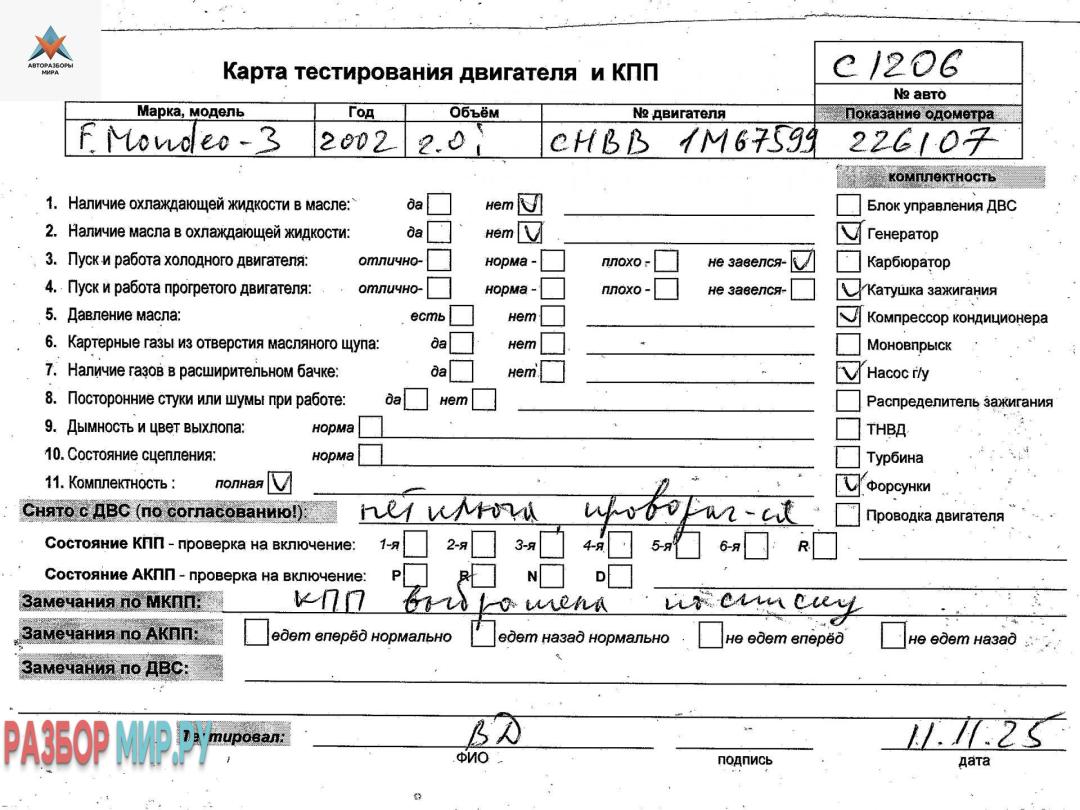 АВТОРАЗБОРЫ
МИРА
Карта тестирования двигателя и КПП
С1206
№ авто
Марка, модель Год Объём № двигателя Показание одометра
F. Mondeo-3 2002 2.0i CHBB 1M67599 226107
комплектность
1. Наличие охлаждающей жидкости в масле: да нет
Блок управления ДВС
2. Наличие масла в охлаждающей жидкости: да нет
Генератор
3. Пуск и работа холодного двигателя: отлично- норма - плохо - не завелся-
Карбюратор
4. Пуск и работа прогретого двигателя: отлично- норма - плохо - не завелся-
Катушка зажигания
5. Давление масла: есть нет
Компрессор кондиционера
6. Картерные газы из отверстия масляного щупа: да нет
Моновпрыск
7. Наличие газов в расширительном бачке: да нет
Насос г/у
8. Посторонние стуки или шумы при работе: да нет
Распределитель зажигания
9. Дымность и цвет выхлопа: норма
ТНВД
10. Состояние сцепления: норма
Турбина
11. Комплектность : полная
Форсунки
Снято с ДВС (по согласованию!): нет ключа, проворач-ся
Проводка двигателя
Состояние КПП - проверка на включение: 1-я 2-я 3-я 4-я 5-я 6-я R
Состояние АКПП - проверка на включение: P R N D
Замечания по МКПП: КПП выброшена по списку
Замечания по АКПП: едет вперёд нормально едет назад нормально не едет вперёд не едет назад
Замечания по ДВС:
РАЗБОРМИР.РУ
Тестировал: ВД 11.11.25
ФИО подпись дата